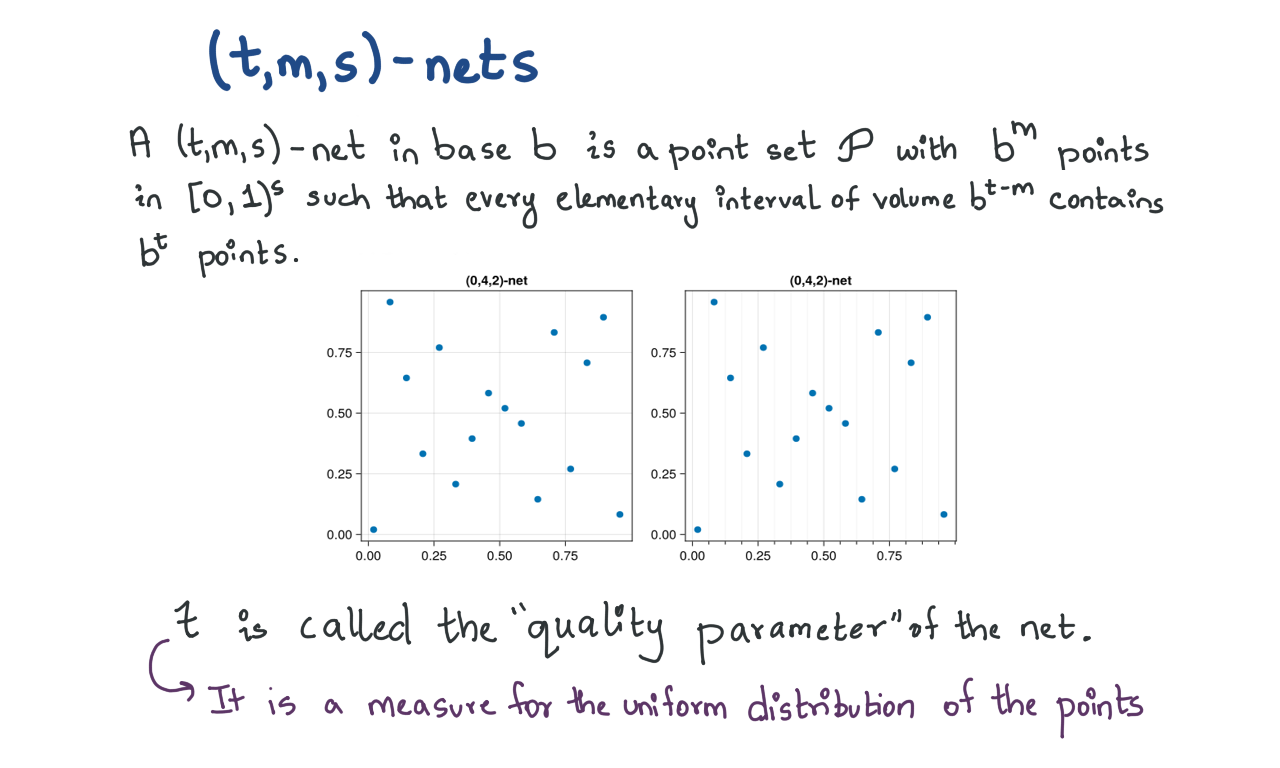 (t,m,s)-nets
A (t,m,s)-net in base b is a point set P with b^m points
in [0,1)^s such that every elementary interval of volume b^t-m contains
b^t points.
(0,4,2)-net
0.75
0.50
0.25
0.00
0.00 0.25 0.50 0.75
(0,4,2)-net
0.75
0.50
0.25
0.00
0.00 0.25 0.50 0.75
t is called the "quality parameter" of the net.
It is a measure for the uniform distribution of the points